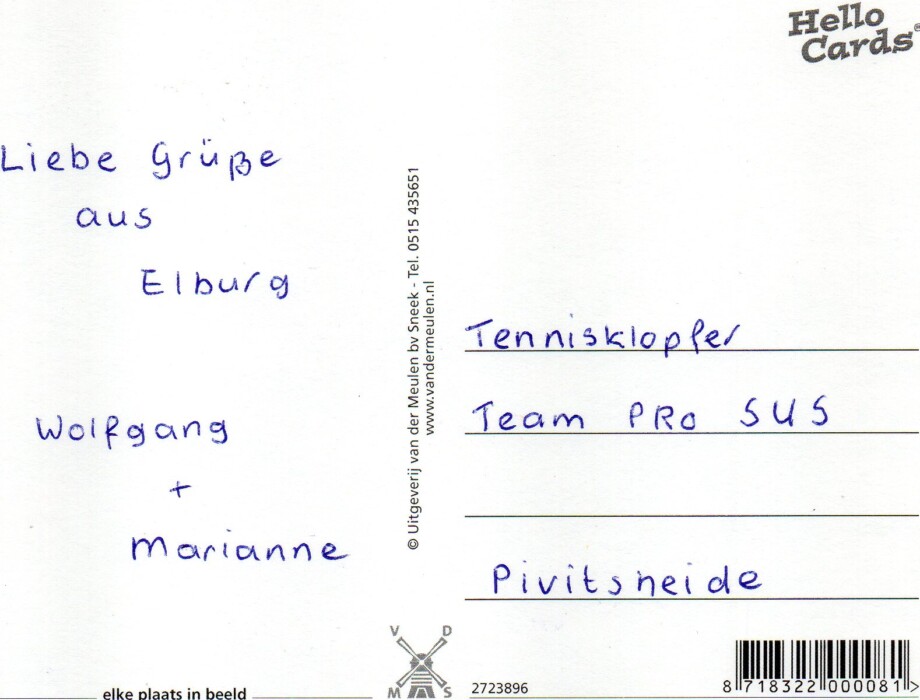 Hello
Cards®
Liebe Grüße
aus
Elburg
Wolfgang
+
Marianne
© Uitgeverij van der Meulen bv Sneek - Tel. 0515 435651
www.vandermeulen.nl
Tennisklopfer
Team PRo SUS
Pivitsheide
V D
M S
elke plaats in beeld
2723896
8 718322 000081 >